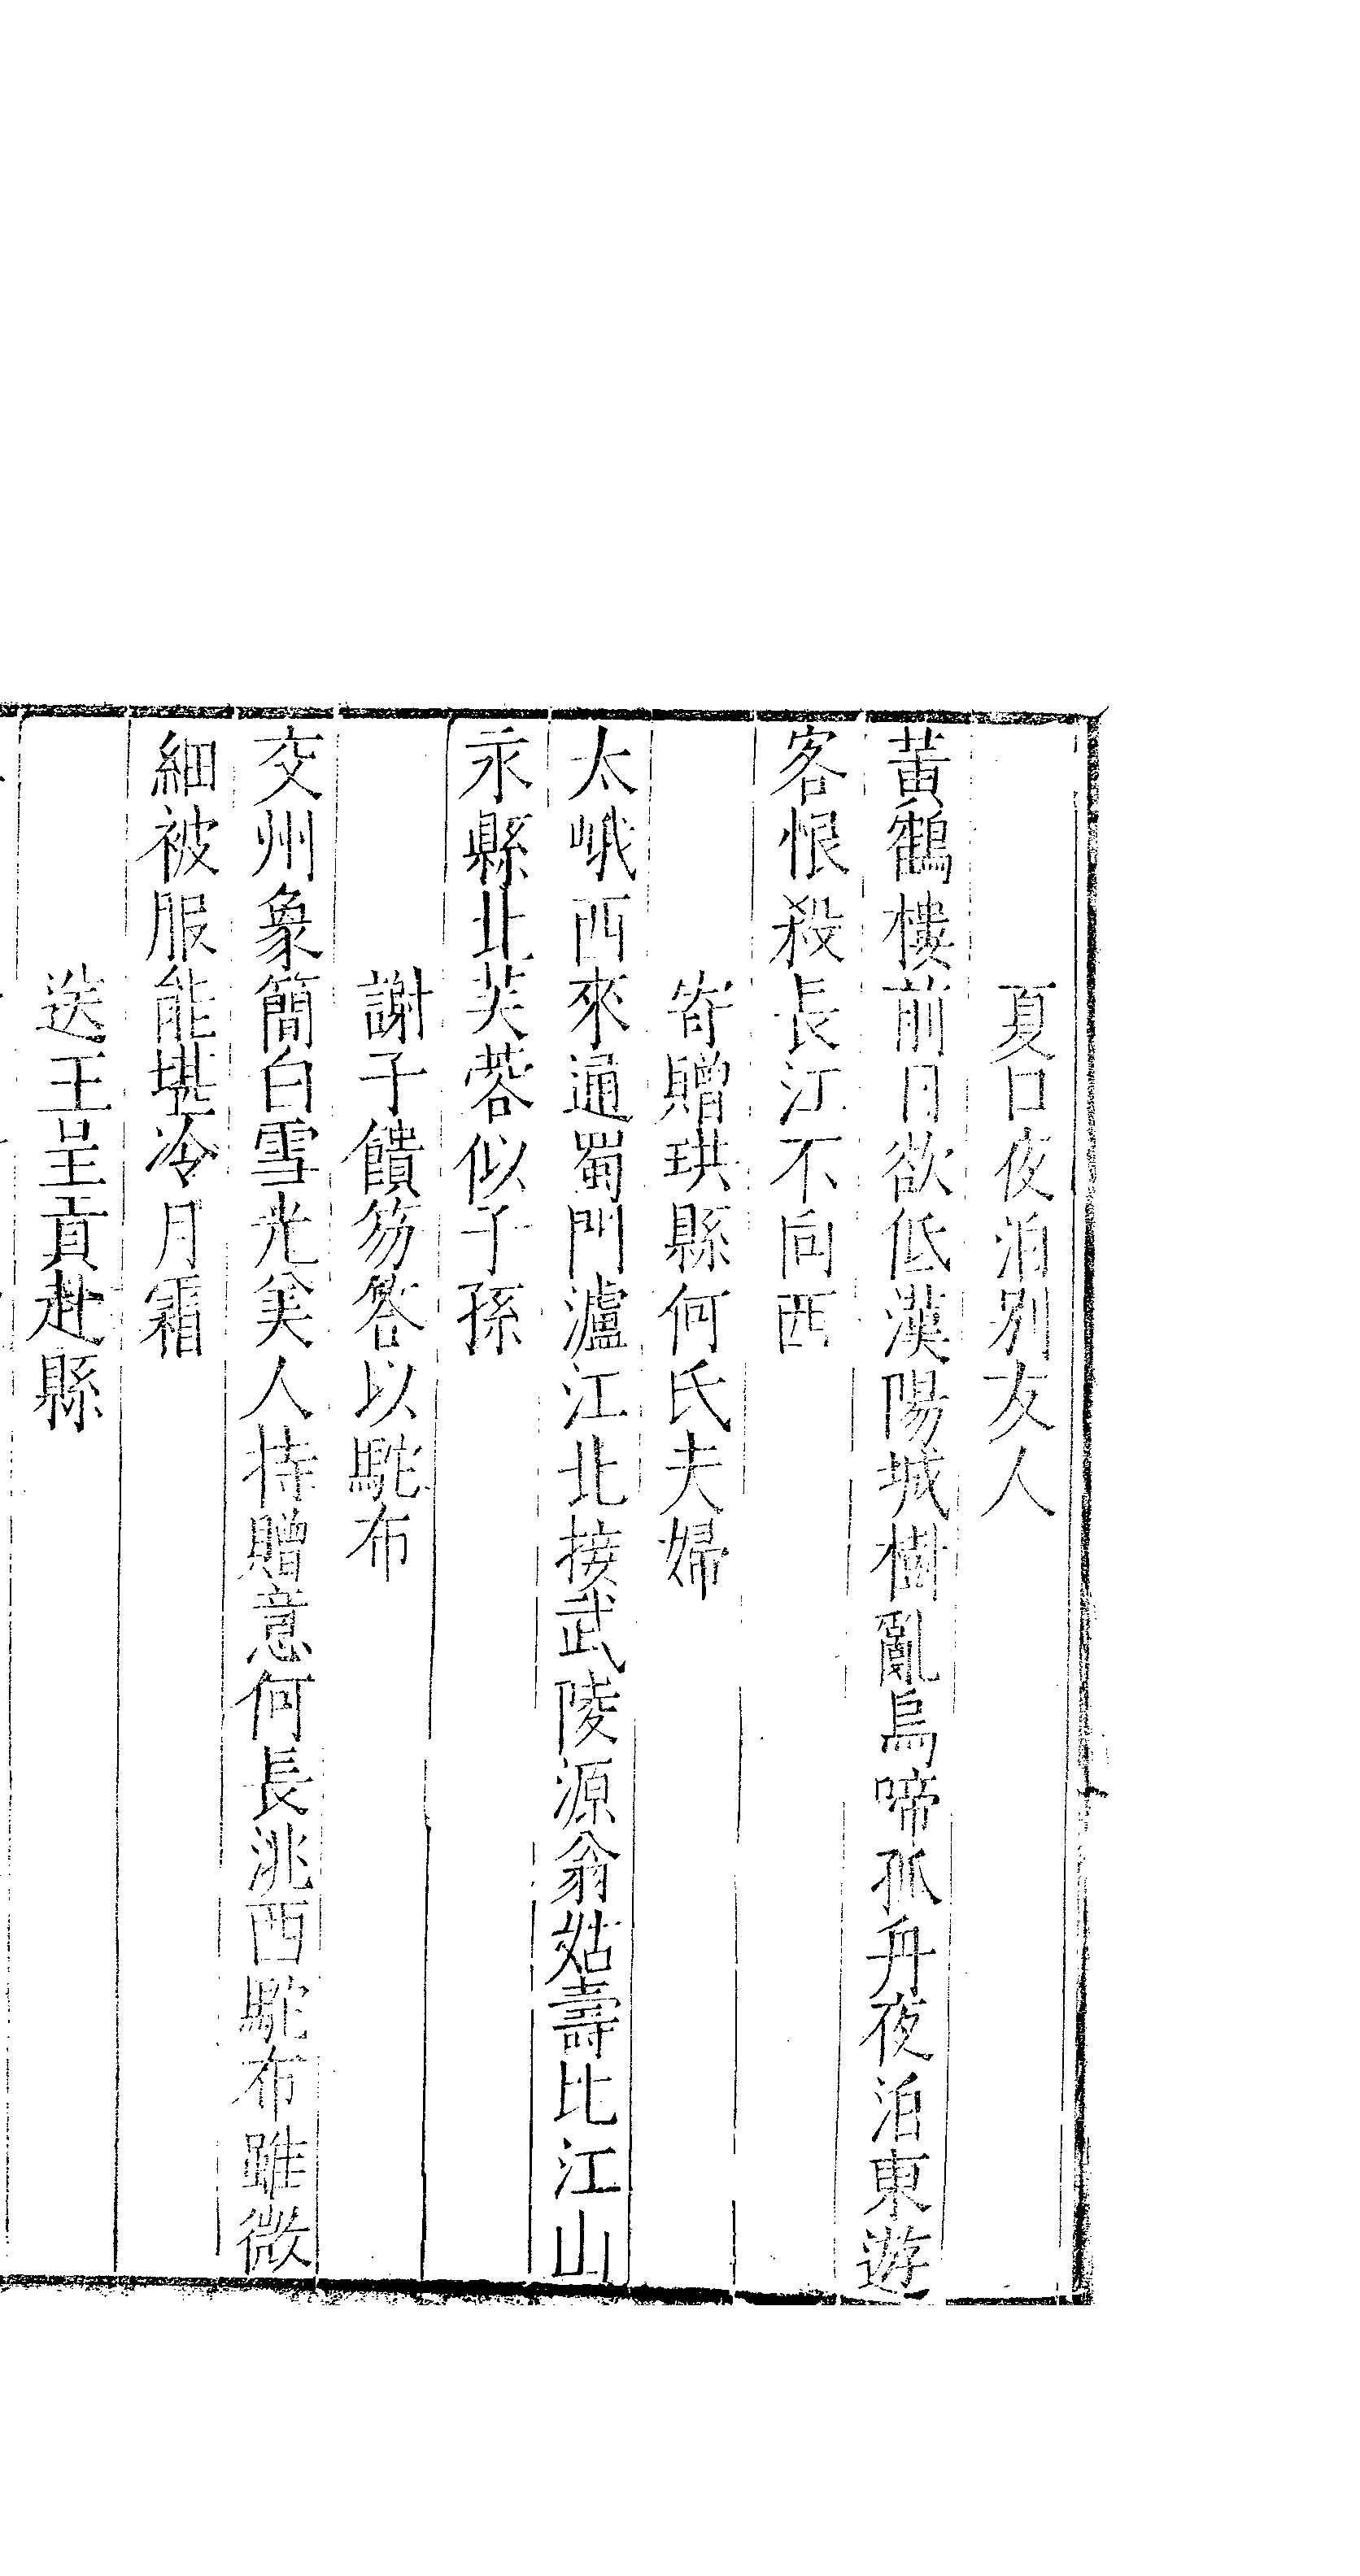 夏口夜泊別友人
黃鶴樓前月欲低漢陽城樹亂烏啼孤舟夜泊東遊
客恨殺長江不向西
寄贈珙縣何氏夫婦
太峨西來通蜀門瀘江北接武陵源翁姑壽比江山
永縣北芙蓉似子孫
謝子饋笏答以駝布
交州象簡白雪光美人持贈意何長洮西駝布雖微
細被服能堪冷月霜
送王呈貢赴縣